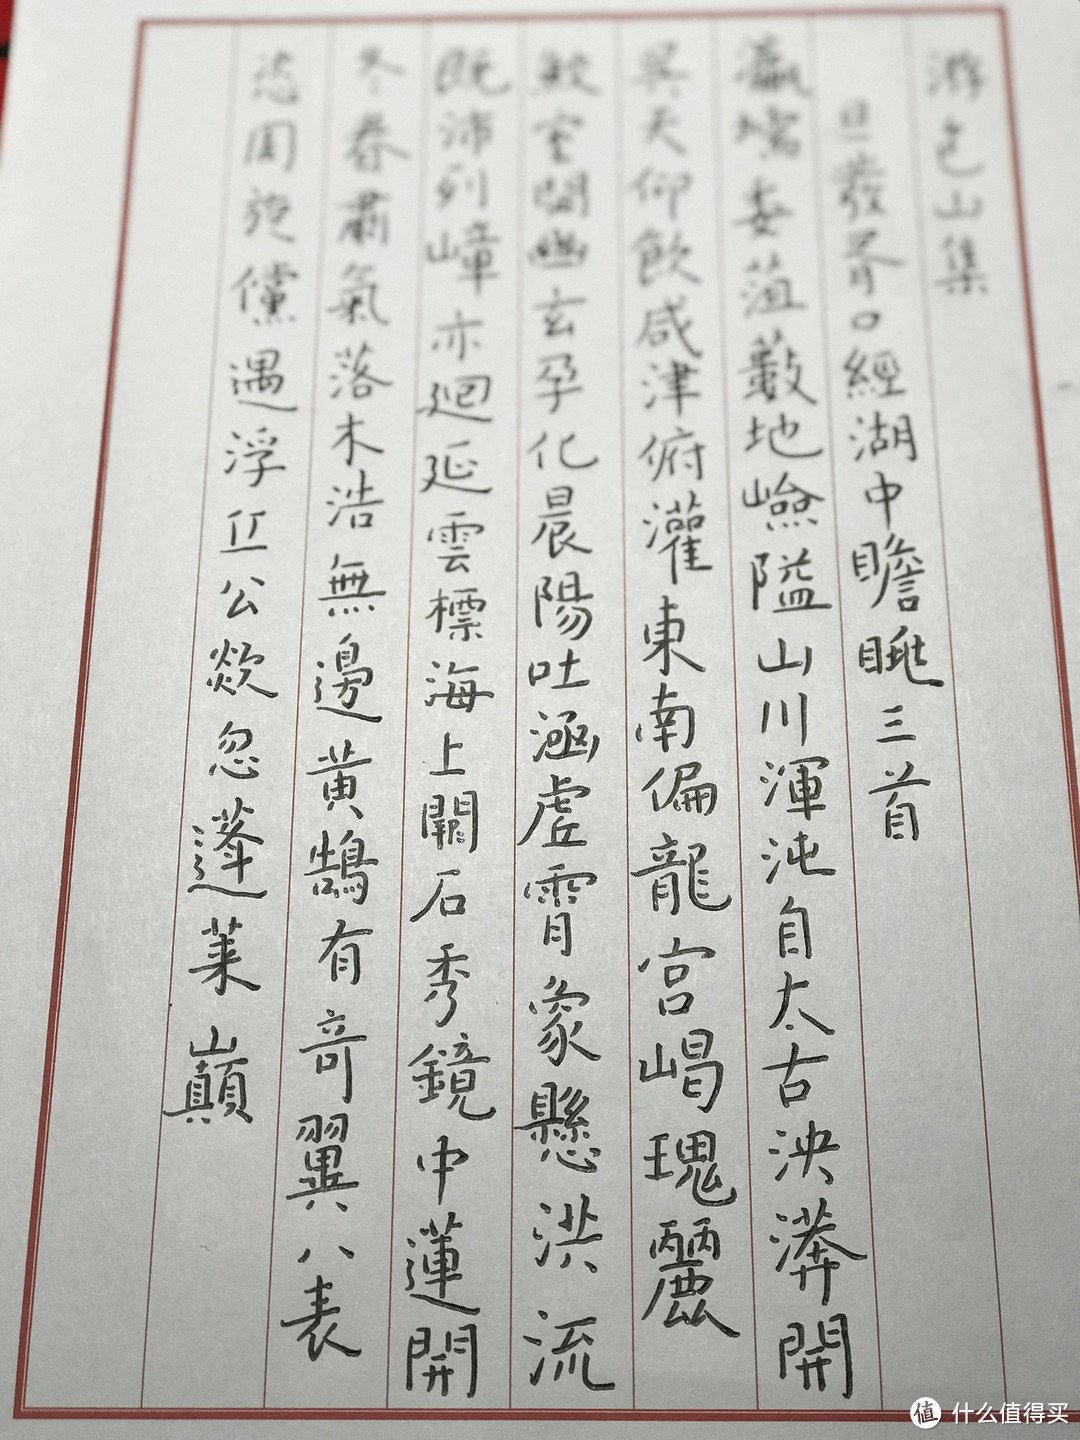 游包山集
旦發胥口經湖中瞻眺三首
瀛壖委菹藪地嶮隘山川渾沌自太古泱漭開
吳天仰飲咸津俯灌東南偏龍宮崵瑰麗
鮫室閟幽玄孕化晨陽吐涵虛霄象懸洪流
既沛列嶂亦迴延雲標海上闕石秀鏡中蓮開
冬春肅氣落木浩無邊黃鵠有奇翼八表
恣周旋儻遇浮丘公欻忽蓬萊巔
值 什么值得买